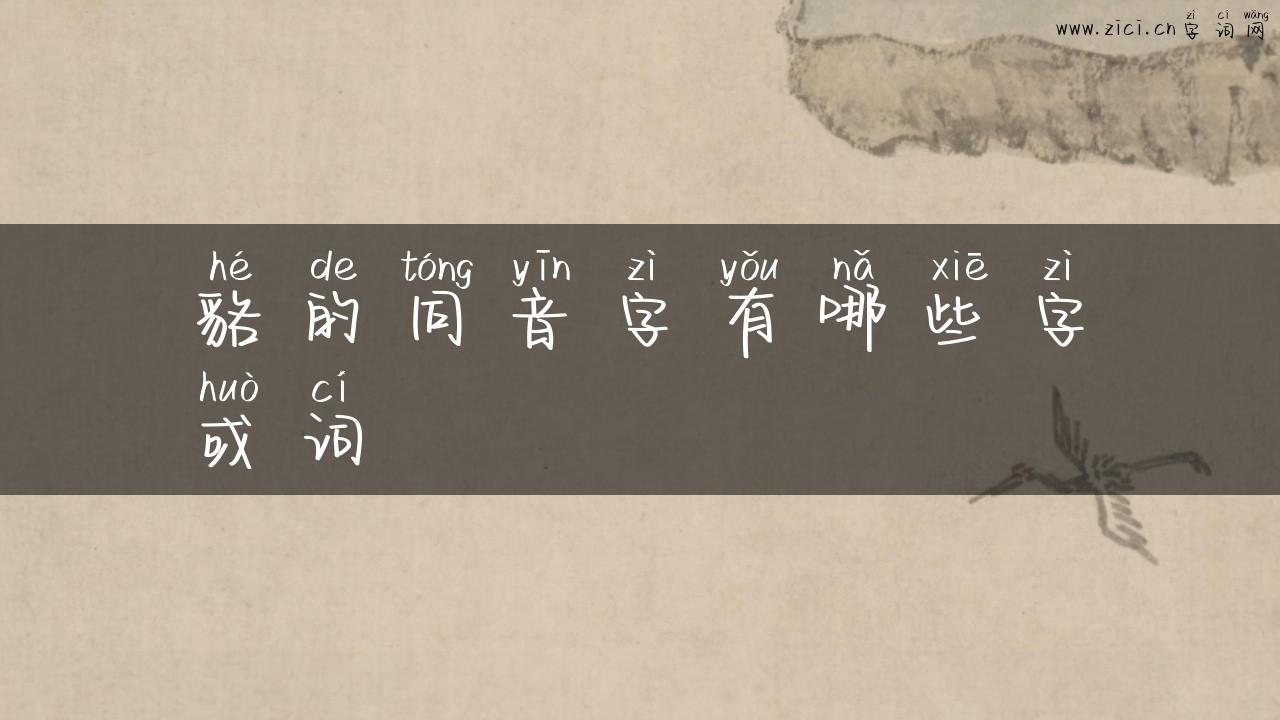 zì cí wǎng
www.zici.cn 字词网
hé de tóng yīn zì yǒu nǎ xiē zì
貉的同音字有哪些字
huò cí
或词